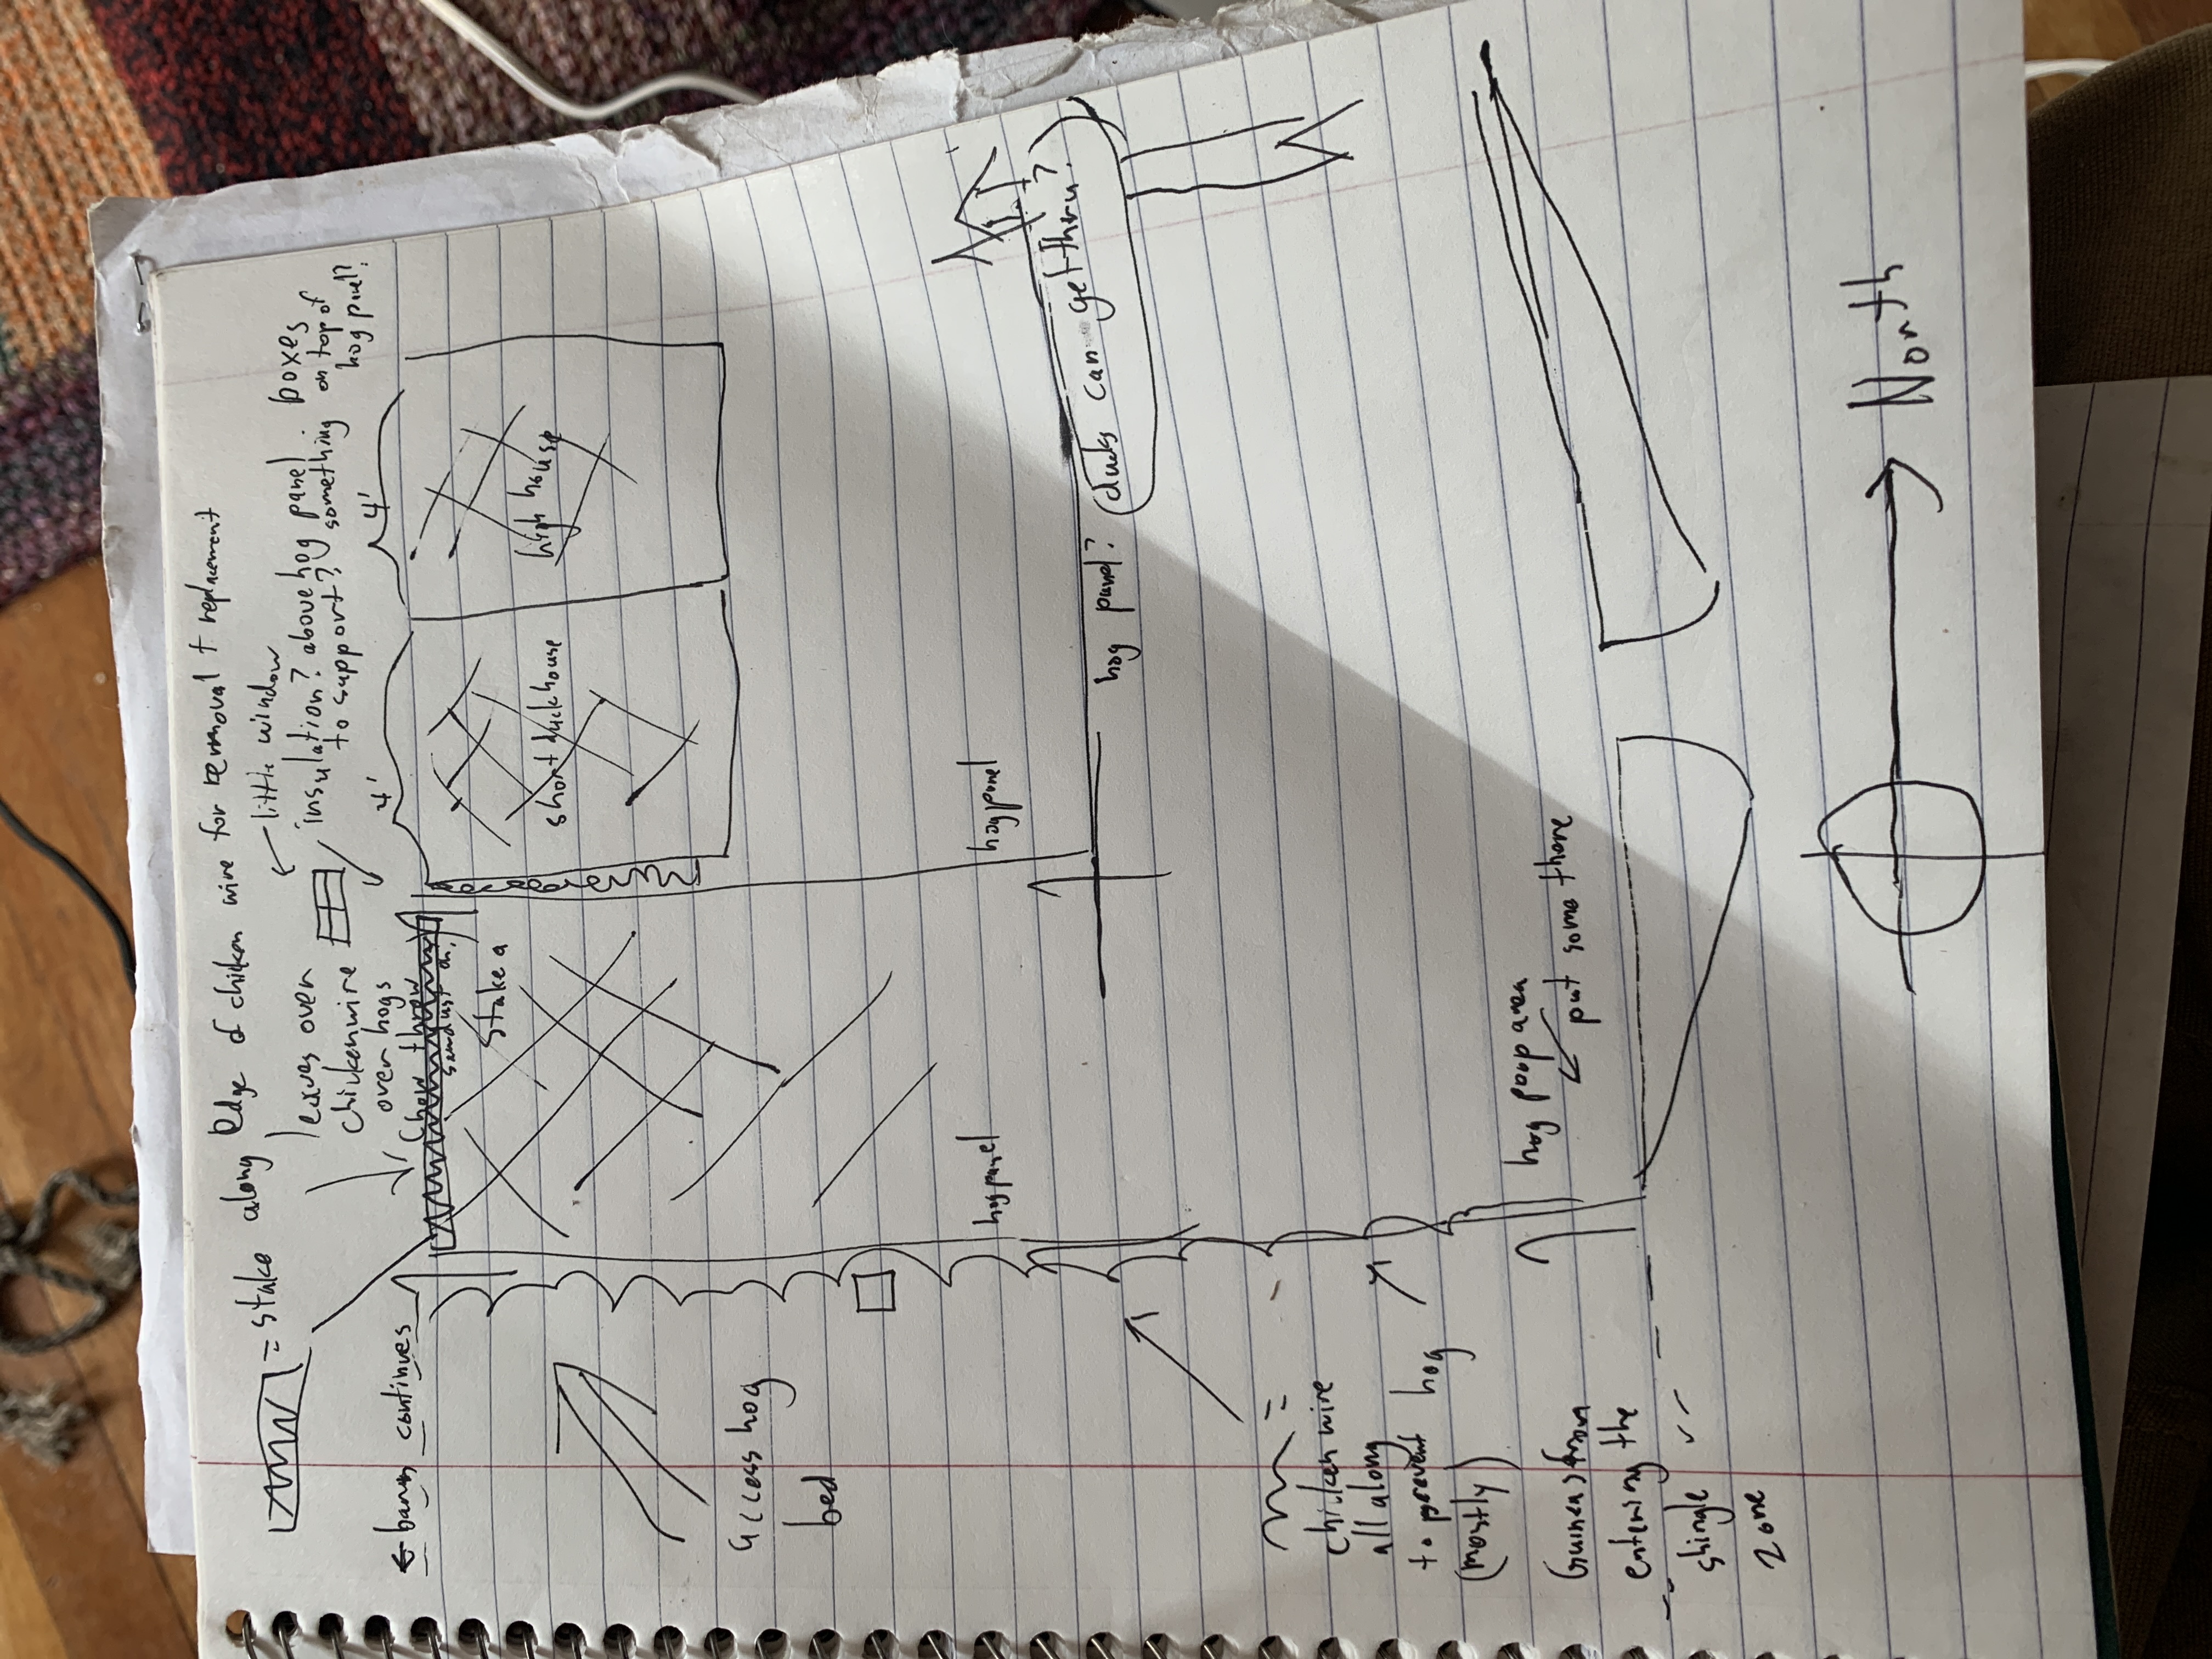 = stake along edge of chicken wire for removal + replacement
← little window
leaves over
chickenwire
over hogs
insulation? above hog panel
to support?
boxes
something on top of
hog panel?
4'
4'
← barn continues
then throw
sawdust on,
Stake a
short duckhouse
high house
access hog
bed
hog panel
hog panel
hog panel?
(ducks can get thru?)
=
chicken wire
all along
to prevent hog
(mostly)
Guineas from
entering the
shingle
zone
hog poop area
put some there
North